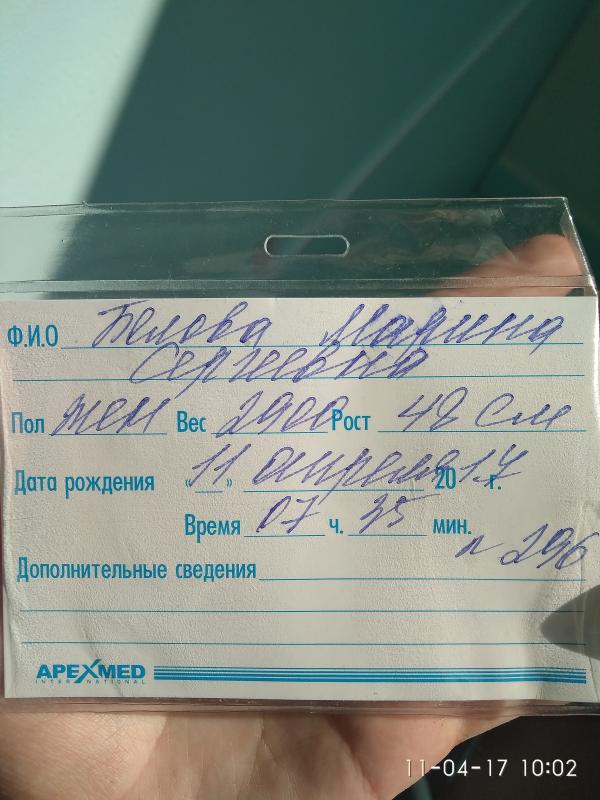 Ф.И.О Белова Марина
Сергеевна
Пол жен Вес 2900 Рост 48 см
Дата рождения «11» апреля 2017 г.
Время 07 ч. 35 мин.
л 296
Дополнительные сведения
APEXMED
INTERNATIONAL
11-04-17 10:02